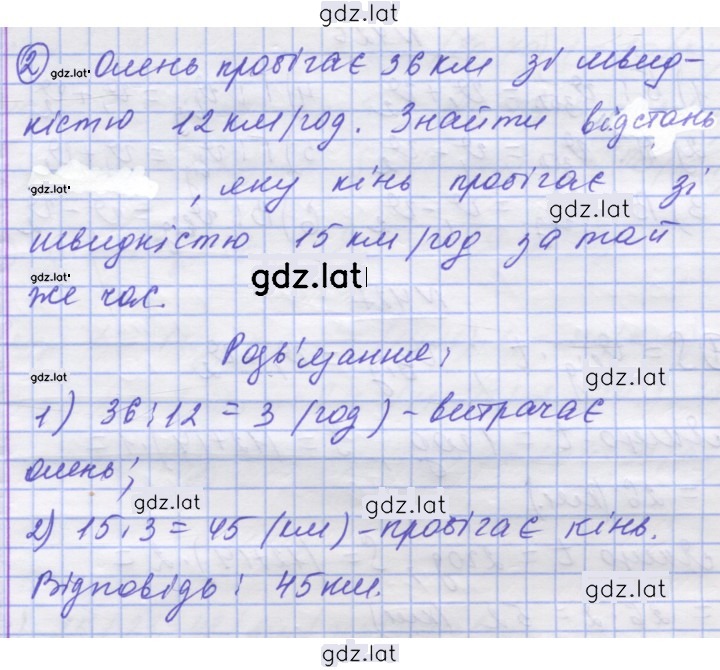 gdz.lat
② gdz.lat Олень пробігає 36 км зі швид-
кістю 12 км/год. Знайти відстань
gdz.lat , яку кінь пробігає зі
gdz.lat
швидкістю 15 км/год за той
gdz.lat gdz.lat
же час.
Розв'язання:
gdz.lat gdz.lat
1) 36 : 12 = 3 (год) - витрачає
олень;
gdz.lat gdz.lat
2) 15 · 3 = 45 (км) - пробігає кінь.
Відповідь: 45 км.
gdz.lat
gdz.lat